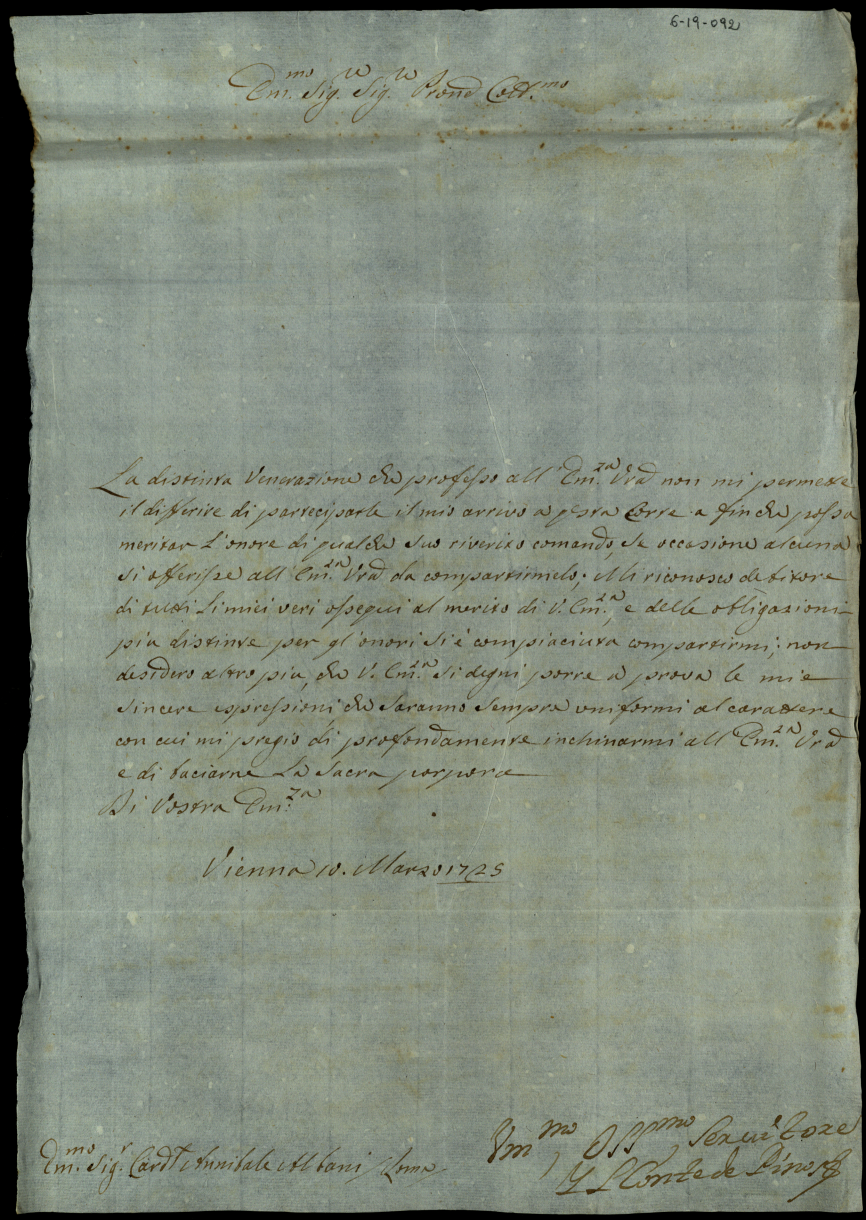 6-19-092
Em.mo Sig.re Sig.re Prone Coll.mo
La distinta Venerazione che professo all' Em.za Vra non mi permette
il differire di parteciparle il mio arrivo a qesta Corte a fin che possa
meritar L'onore di qualche suo riverito comando, se occasione alcuna
si offerisse all' Em.za Vra da compartirmelo; Mi riconosco debitore
di tutti Li miei veri ossequi al merito di V. Em.za, e delle obligazioni
piu distinte per gl'onori si è compiaciuta compartirmi; non
desidero altro piu, che V. Em.za si degni porre a prova le mie
sincere espressioni, che saranno sempre uniformi al carattere
con cui mi pregio di profondamente inchinarmi all' Em.za Vra
e di baciarne La Sacra porpora
Di Vostra Em.za
Vienna 10. Marzo 1725
Vm.mo, Oss.mo Servitore
Yl Conte de Pinos
Em.mo Sig.r Card.l Annibale Albani Roma